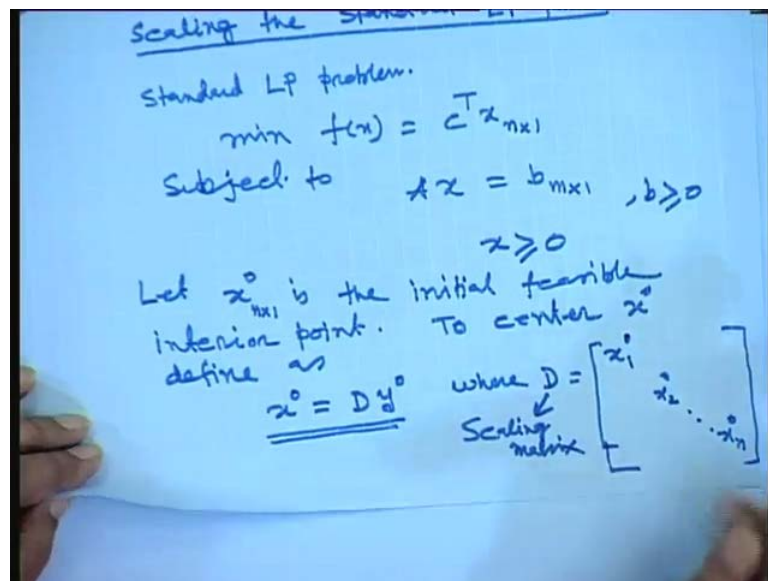 Scaling the Standard LP
Standard LP problem.
min f(x) = cᵀx n×1
Subject to Ax = b m×1 , b ≥ 0
x ≥ 0
Let x⁰ n×1 is the initial feasible
interior point. To center x⁰
define as
x⁰ = D y⁰ where D = [x₁⁰ x₂⁰ ... xₙ⁰]
Scaling
matrix